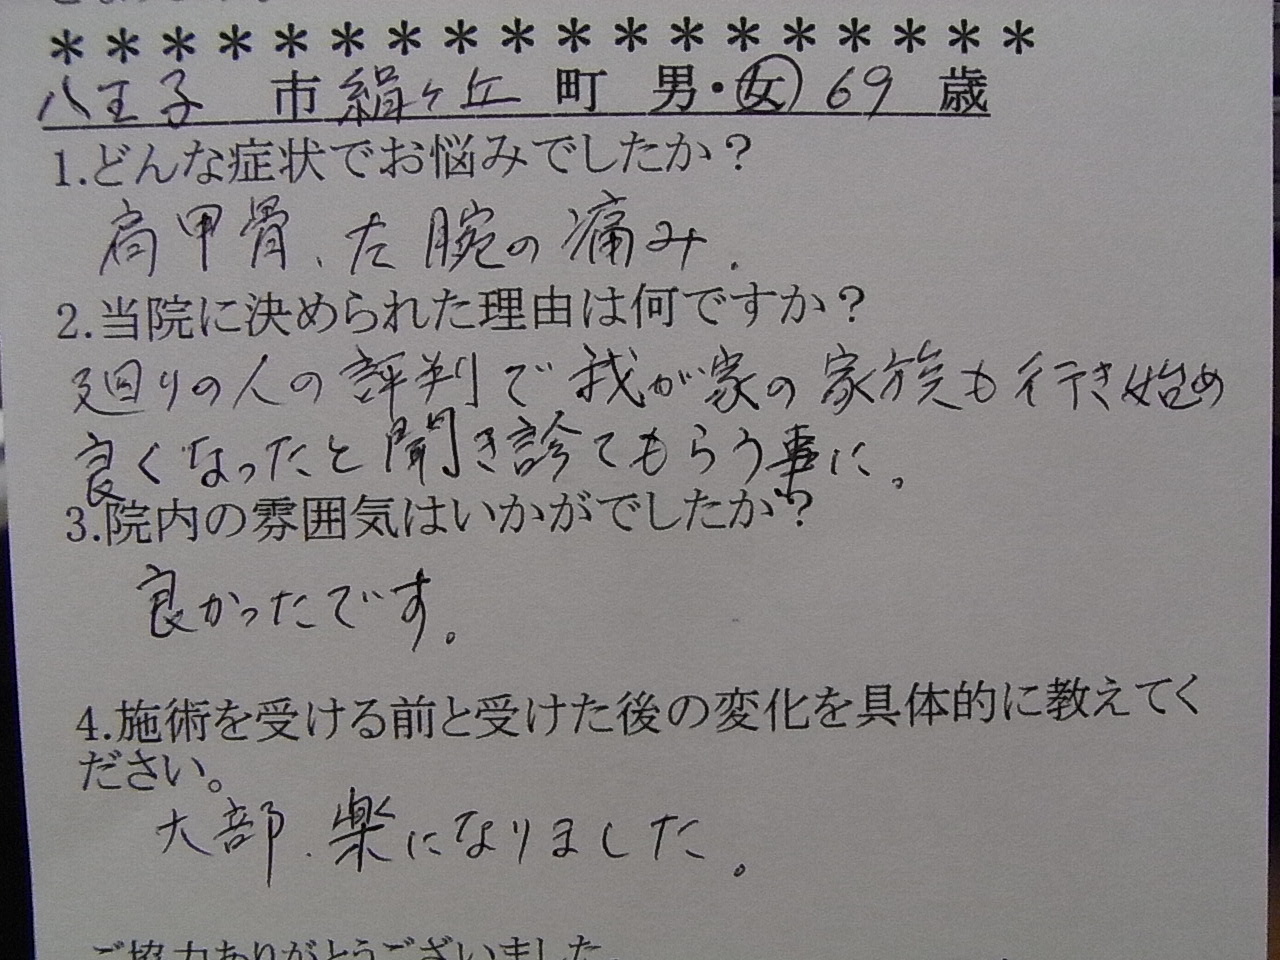 * * * * * * * * * * * * * * * * * *
八王子 市 絹ヶ丘 町 男・女 69 歳
1.どんな症状でお悩みでしたか？
肩甲骨、左腕の痛み.
2.当院に決められた理由は何ですか？
廻りの人の評判で我が家の家族も行き始め
良くなったと聞き診てもらう事に。
3.院内の雰囲気はいかがでしたか？
良かったです。
4.施術を受ける前と受けた後の変化を具体的に教えてく
ださい。
大部、楽になりました。
ご協力ありがとうございました。